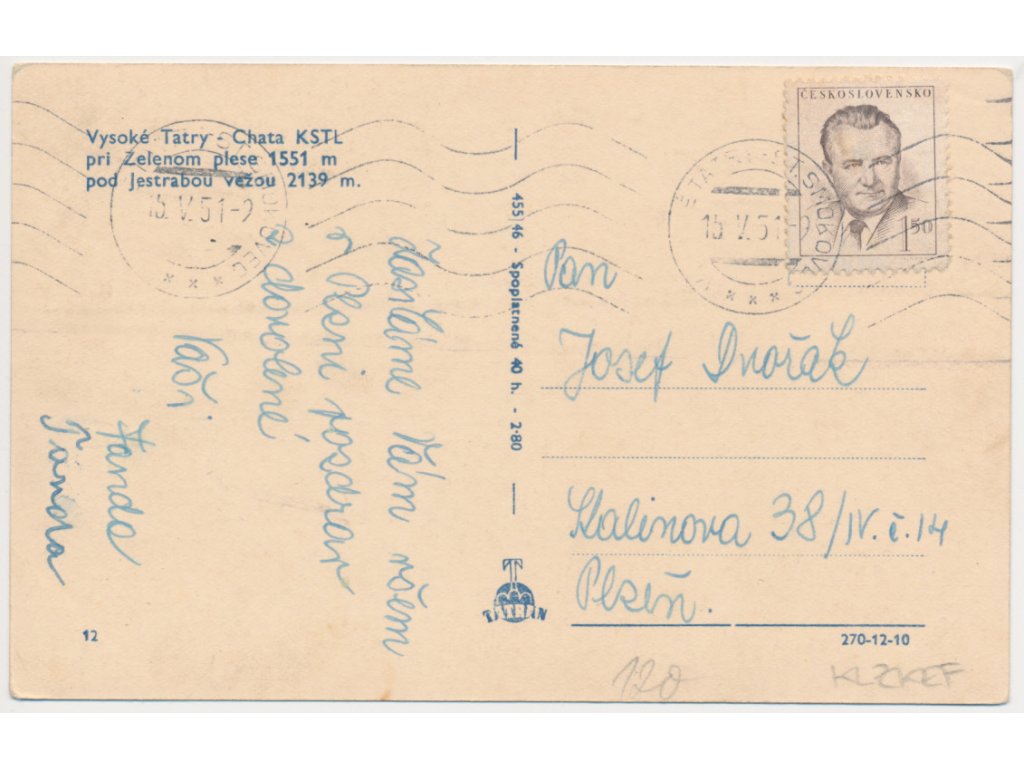 Vysoké Tatry - Chata KSTL
pri Zelenom plese 1551 m
pod Jestrabou vežou 2139 m.
15.V.51-9
zasíláme Vám všem
v Plzni pozdrav
z dovolené
Vaši
Fanda
Fanda
12
455/46 - Spoplatnené 40 h. - 2·80
TATRAN
ČESKOSLOVENSKO
1 50
15.V.51-9
Pan
Josef Dvořák
Kalinova 38/IV. č. 14
Plzeň.
270-12-10
120
KLZKEF